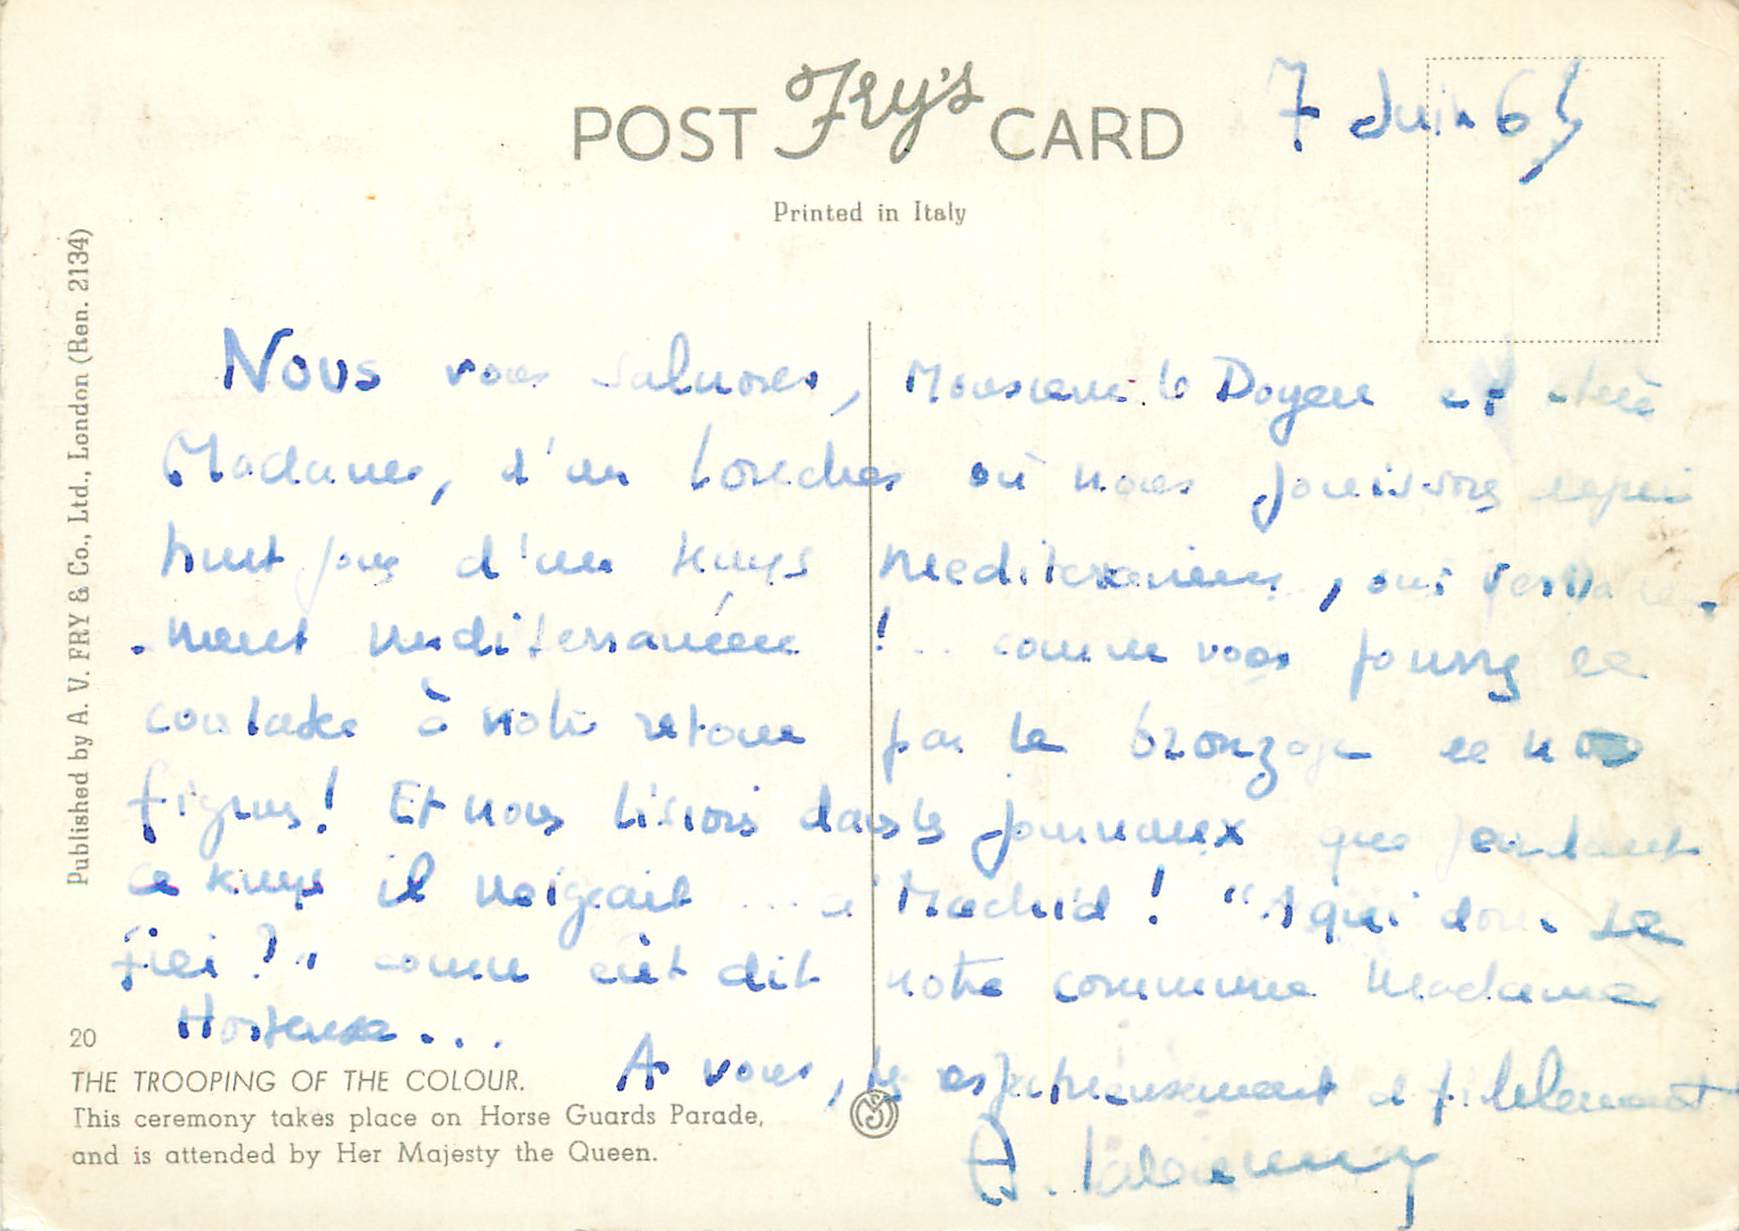 POST Fry's CARD
7 Juin 65
Printed in Italy
Published by A. V. FRY & Co., Ltd., London (Ren. 2134)
Nous vous saluons, Monsieur le Doyen et chère
Madame, d'un Londres où nous jouissons depuis
huit jours d'un temps méditerranéen, oui
-ment méditerranéen !.. comme vous pourrez le
constater à notre retour par le bronzage de nos
figures! Et nous lisions dans les journaux que pendant
ce temps il neigeait ... à Madrid ! "A qui donc se
fier ?" comme eût dit notre commune Madame
Hortense...
A vous, très respectueusement et fidèlement
A.
20
THE TROOPING OF THE COLOUR.
This ceremony takes place on Horse Guards Parade,
and is attended by Her Majesty the Queen.